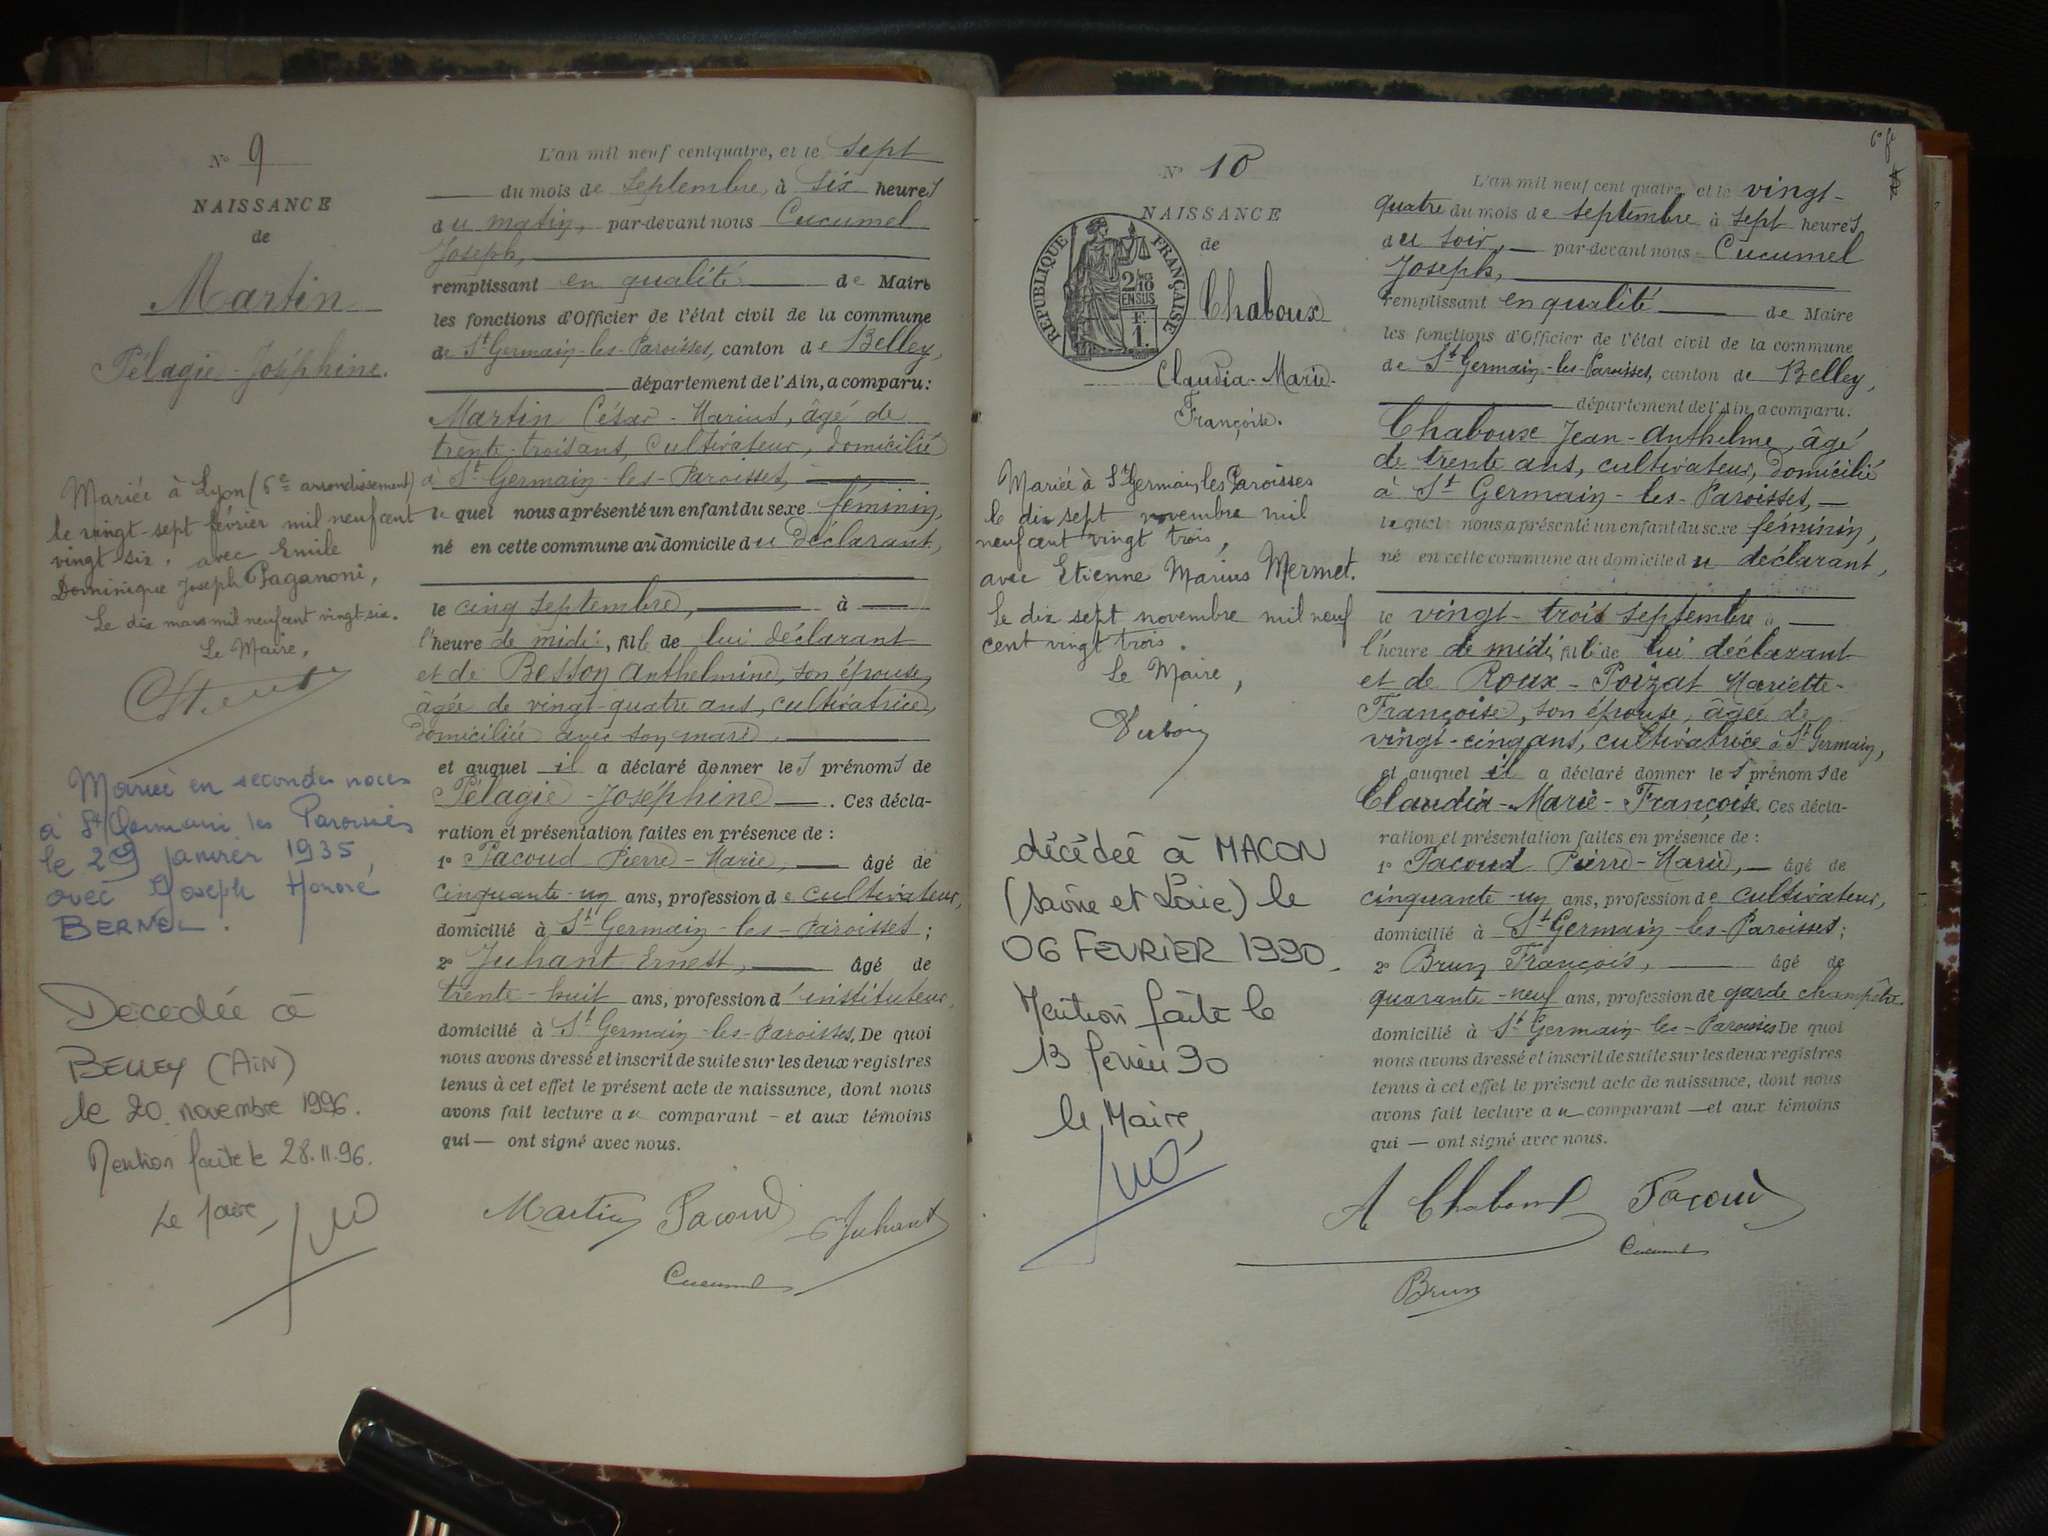 N° 9
NAISSANCE
de
Martin
Pélagie-Joséphine.
Mariée à Lyon (6e arrondissement)
le vingt-sept février mil neuf cent
vingt six, avec Emile
Dominique Joseph Paganoni,
Le dix mars mil neuf cent vingt six.
Le Maire,
Mariée en secondes noces
à St Germain les Paroisses
le 29 janvier 1935,
avec Joseph Honoré
BERNEL.
Décédée à
BELLEY (AIN)
le 20 novembre 1996.
Mention faite le 28.11.96.
Le Maire,
L'an mil neuf cent quatre, et le sept
du mois de septembre, à six heures
du matin, par-devant nous Cucumel
Joseph,
remplissant en qualité de Maire
les fonctions d'Officier de l'état civil de la commune
de St Germain-les-Paroisses, canton de Belley,
département de l'Ain, a comparu:
Martin César-Marius, âgé de
trente-trois ans, cultivateur, domicilié
à St Germain-les-Paroisses,
lequel nous a présenté un enfant du sexe féminin,
né en cette commune au domicile du déclarant,
le cinq septembre, à
l'heure de midi, fille de lui déclarant
et de Besson Anthelmine, son épouse,
âgée de vingt-quatre ans, cultivatrice,
domiciliée avec son mari.
et auquel il a déclaré donner les prénoms de
Pélagie-Joséphine. Ces décla-
ration et présentation faites en présence de :
1° Pacoud Pierre-Marie, âgé de
cinquante-un ans, profession de cultivateur,
domicilié à St Germain-les-Paroisses;
2° Juhant Ernest, âgé de
trente-huit ans, profession d'instituteur,
domicilié à St Germain-les-Paroisses. De quoi
nous avons dressé et inscrit de suite sur les deux registres
tenus à cet effet le présent acte de naissance, dont nous
avons fait lecture au comparant - et aux témoins
qui — ont signé avec nous.
Martin Pacoud E Juhant
Cucumel
N° 10
NAISSANCE
de
REPUBLIQUE FRANÇAISE
2/10
EN SUS
F.
1.
Chaboux
Claudia-Marie-
Françoise.
Mariée à St Germain les Paroisses
le dix sept novembre mil
neuf cent vingt trois,
avec Etienne Marius Mermet.
Le dix sept novembre mil neuf
cent vingt trois.
Le Maire,
décédée à MACON
(Saône et Loire) le
06 FEVRIER 1990.
Mention faite le
13 février 90
le Maire,
L'an mil neuf cent quatre, et le vingt-
quatre du mois de septembre à sept heures
du soir, — par-devant nous Cucumel
Joseph,
remplissant en qualité de Maire
les fonctions d'Officier de l'état civil de la commune
de St Germain-les-Paroisses, canton de Belley,
département de l'Ain, a comparu.
Chaboux Jean-Anthelme, âgé
de trente ans, cultivateur, domicilié
à St Germain-les-Paroisses,
lequel nous a présenté un enfant du sexe féminin,
né en cette commune au domicile du déclarant,
le vingt-trois septembre à —
l'heure de midi, fille de lui déclarant
et de Roux-Poizat Mariette-
Françoise, son épouse, âgée de
vingt-cinq ans, cultivatrice à St Germain,
et auquel il a déclaré donner les prénoms de
Claudia-Marie-Françoise. Ces décla-
ration et présentation faites en présence de :
1° Pacoud Pierre-Marie, — âgé de
cinquante-un ans, profession de cultivateur,
domicilié à St Germain-les-Paroisses;
2° Brun François, âgé de
quarante-neuf ans, profession de garde champêtre.
domicilié à St Germain-les-Paroisses De quoi
nous avons dressé et inscrit de suite sur les deux registres
tenus à cet effet le présent acte de naissance, dont nous
avons fait lecture au comparant — et aux témoins
qui — ont signé avec nous.
A Chaboux Pacoud
Cucumel
Brun